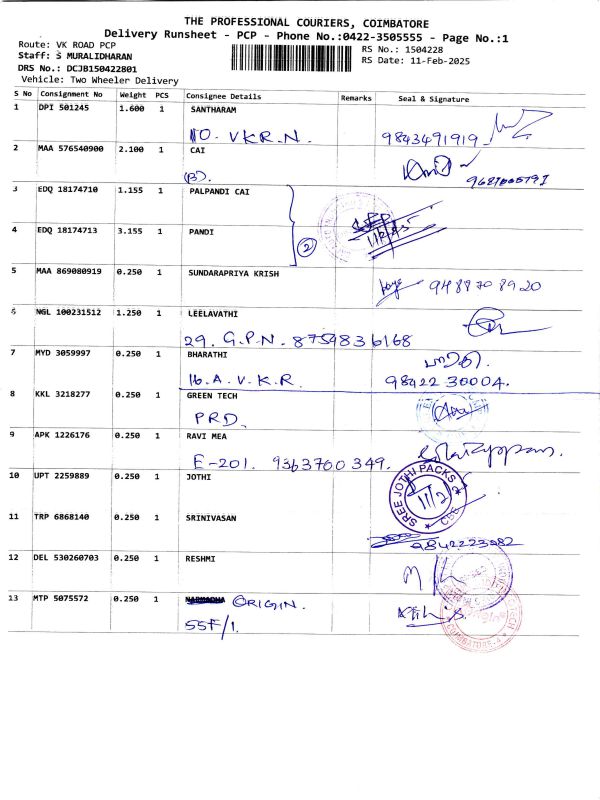 THE PROFESSIONAL COURIERS, COIMBATORE
Delivery Runsheet - PCP - Phone No.:0422-3505555 - Page No.:1
Route: VK ROAD PCP
Staff: S MURALIDHARAN
DRS No.: DCJB150422801
Vehicle: Two Wheeler Delivery
RS No.: 1504228
RS Date: 11-Feb-2025
S No Consignment No Weight PCS Consignee Details Remarks Seal & Signature
1 DPI 501245 1.600 1 SANTHARAM
10. V.K.R.N. 9843491919
2 MAA 576540900 2.100 1 CAI
(B).
3 EDQ 18174710 1.155 1 PALPANDI CAI
4 EDQ 18174713 3.155 1 PANDI
2
5 MAA 869080919 0.250 1 SUNDARAPRIYA KRISH
94887 08920
6 NGL 100231512 1.250 1 LEELAVATHI
29. G.P.N. 8759836168
7 MYD 3059997 0.250 1 BHARATHI
பாரதி.
16. A. V. K. R. 98422 30004.
8 KKL 3218277 0.250 1 GREEN TECH
PRD.
9 APK 1226176 0.250 1 RAVI MEA
E-201. 9363700349.
10 UPT 2259889 0.250 1 JOTHI
SREE JOTHI PACKS
CBE
11/2
11 TRP 6868140 0.250 1 SRINIVASAN
9842223982
12 DEL 530260703 0.250 1 RESHMI
13 MTP 5075572 0.250 1 ORIGIN.
55F/1.
COIMBATORE-4